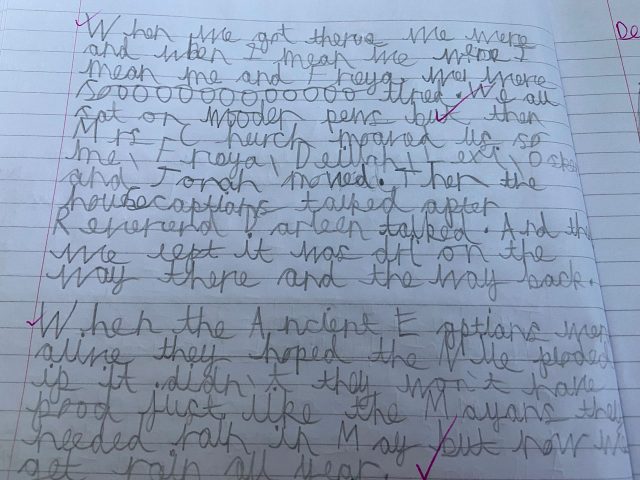 When we got there we were
and when I mean we wire I
mean me and Freya. we were
soooooooooooooo tired. We all
sat on wooden pews but then
Mrs C hurch moaved us so
me, Freya, Delilah, Lexi, Oska
and Jonah moved. Then the
house captians talked after
Reverend Darleen talked. And the
we left it was drt on the
way there and the way back.
De
When the Ancient E gptians wer
alive they hoped the Nile flooded
if it didn't they won't have
food just like the Mayans they
needed rain in May but now we
get rain all year.